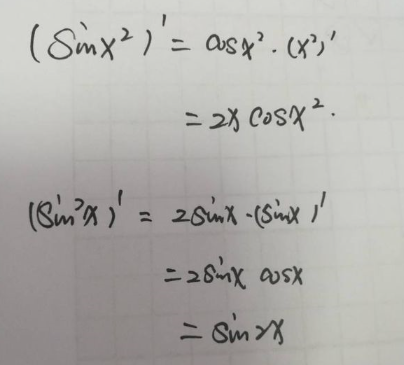 (sinx²)' = cosx² · (x²)'
= 2x cosx².
(sin²x)' = 2sinx · (sinx)'
= 2sinx cosx
= sin2x